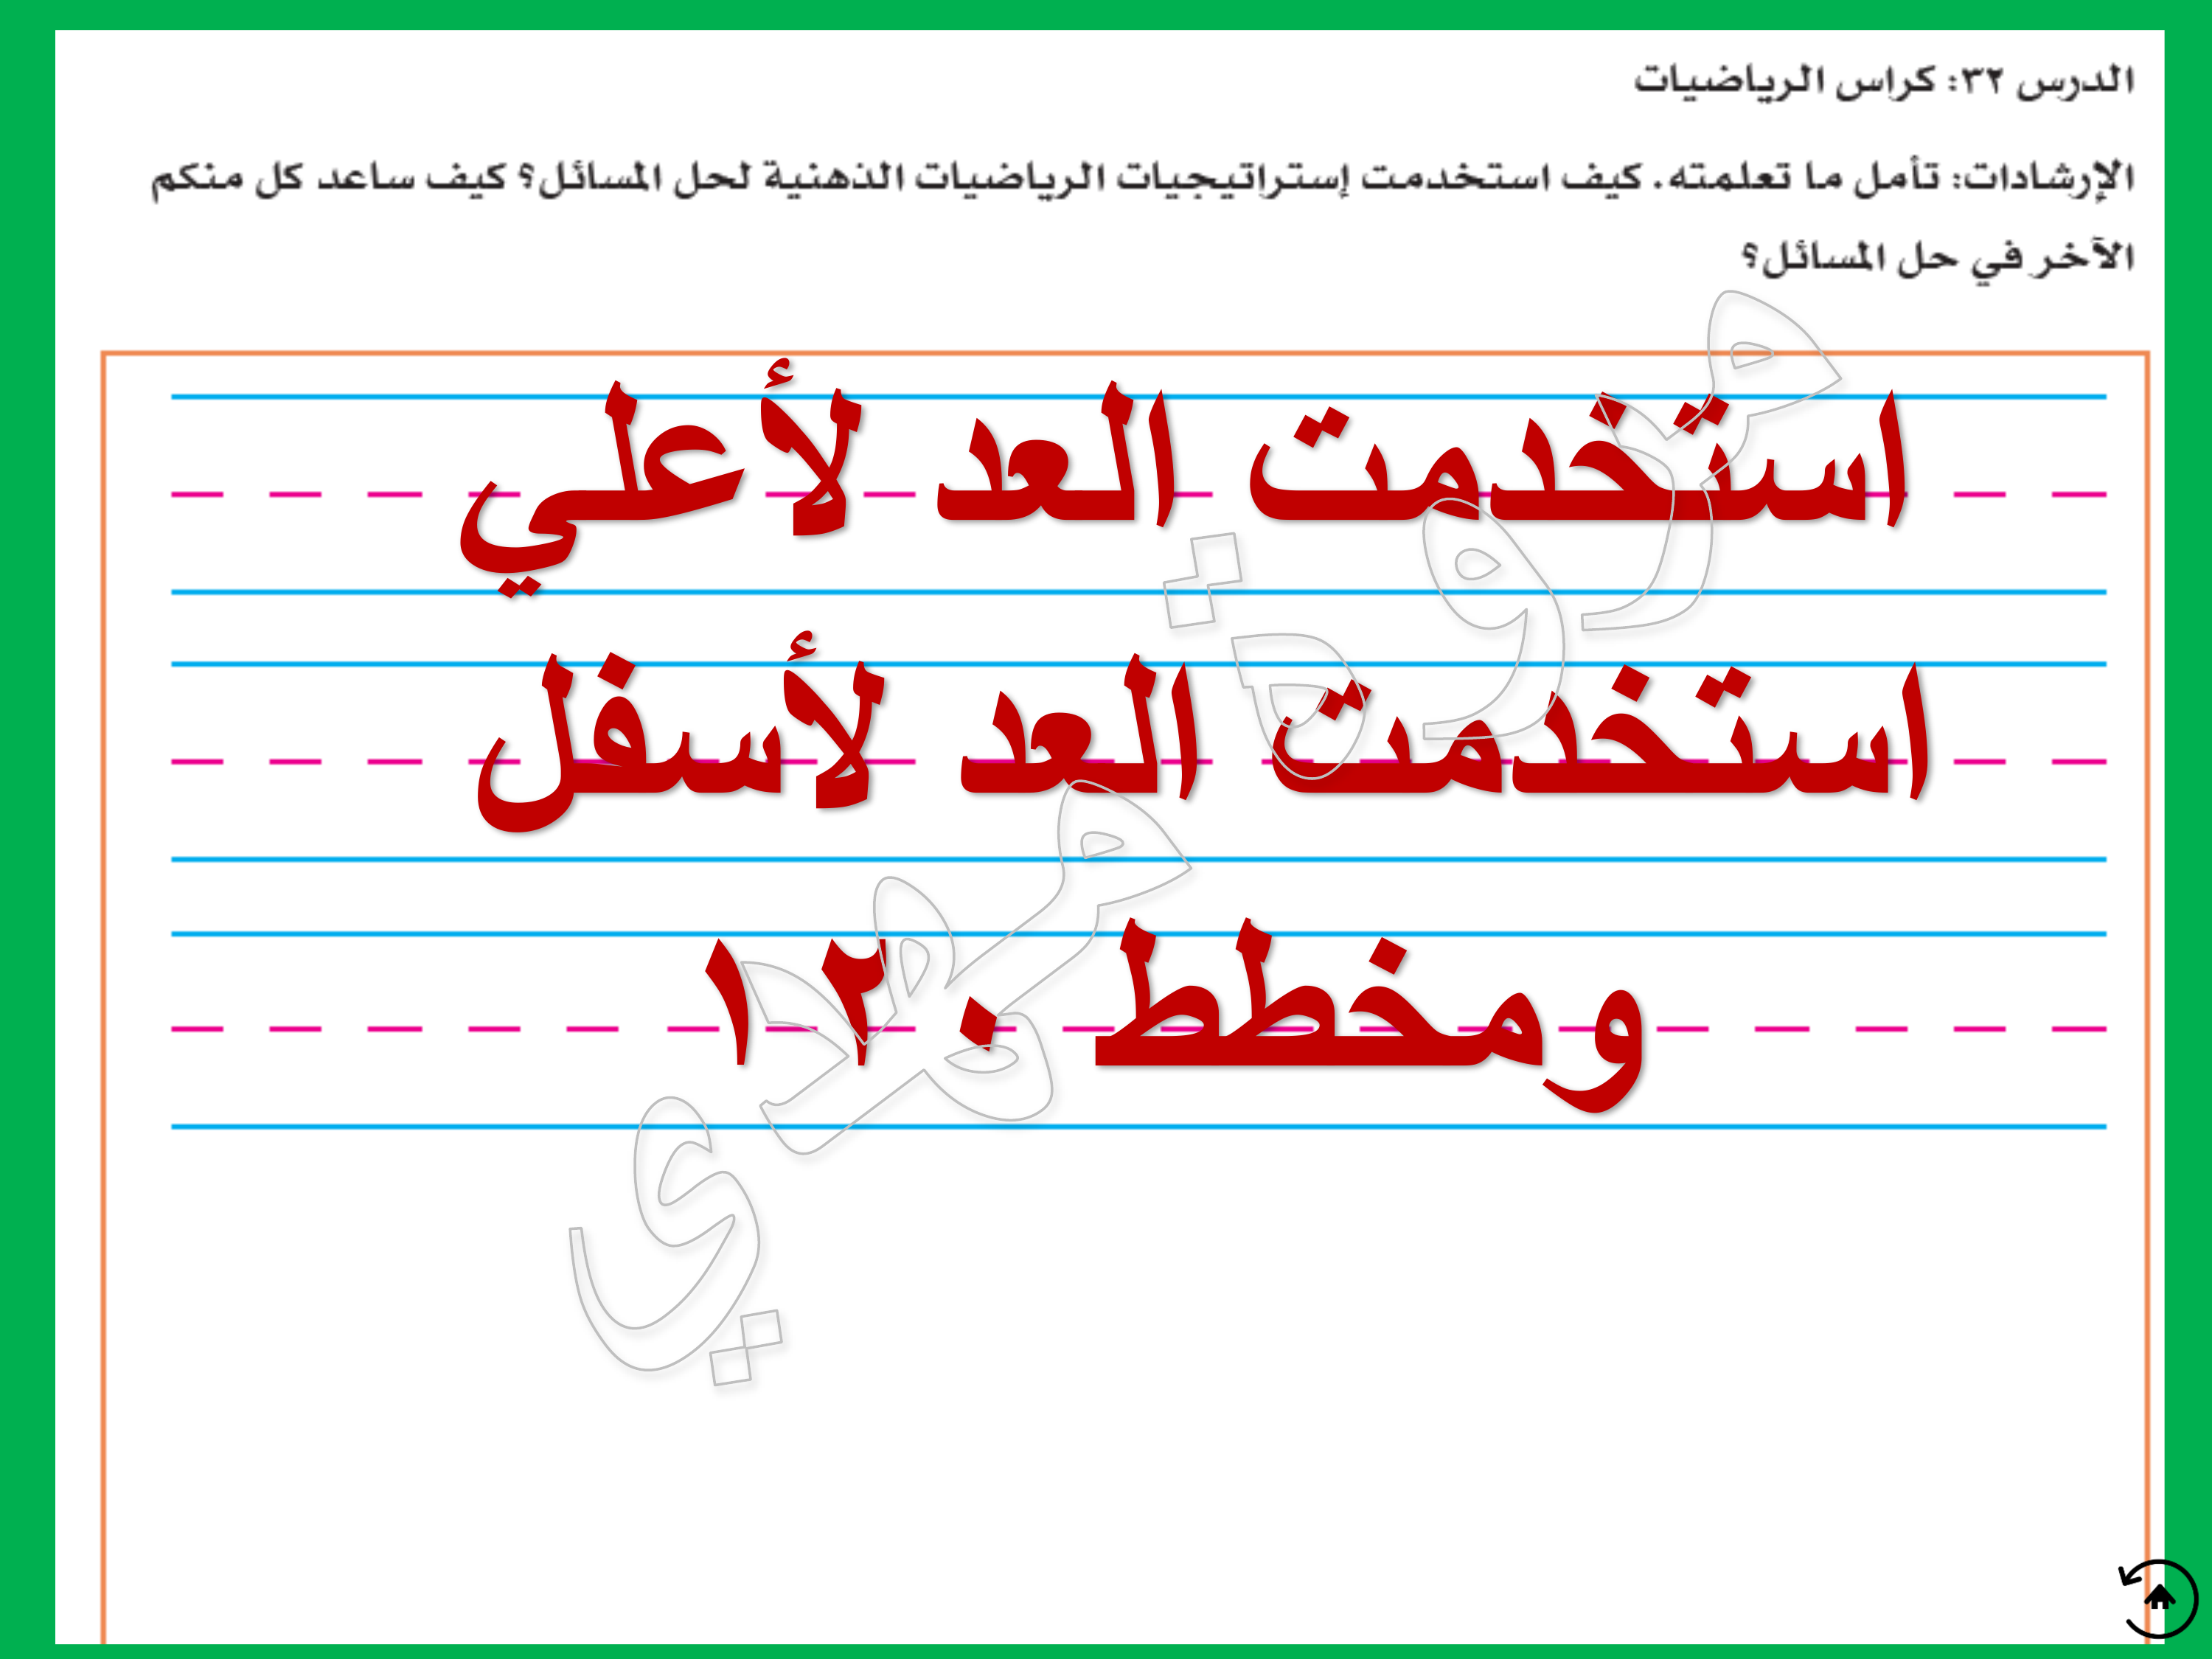 الدرس ٣٢: كراس الرياضيات
الإرشادات: تأمل ما تعلمته. كيف استخدمت إستراتيجيات الرياضيات الذهنية لحل المسائل؟ كيف ساعد كل منكم
الآخر في حل المسائل؟
استخدمت العد لأعلي
استخدمت العد لأسفل
ومخطط ١٢٠
مروة مهدي